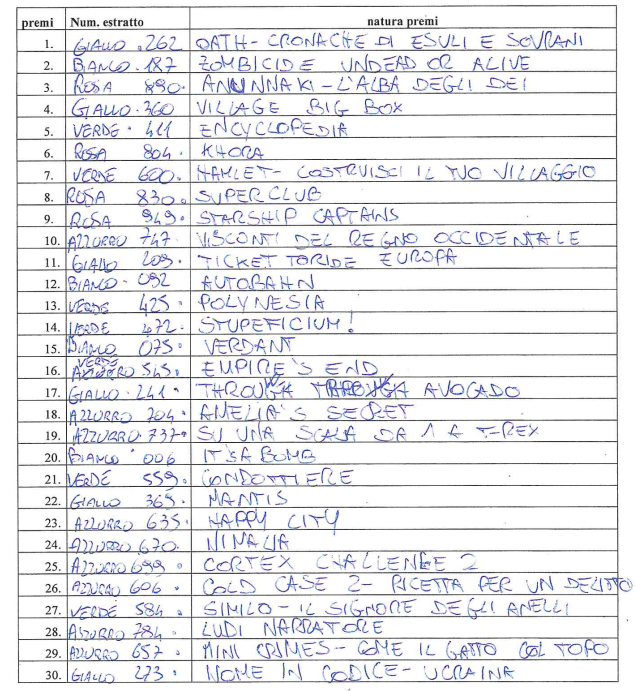 premi Num. estratto natura premi
1. GIALLO . 262 OATH - CRONACHE DI ESULI E SOVRANI
2. BIANCO . 187 ZOMBICIDE UNDEAD OR ALIVE
3. ROSA 890. ANUNNAKI - L'ALBA DEGLI DEI
4. GIALLO . 360 VILLAGE BIG BOX
5. VERDE . 411 ENCYCLOPEDIA
6. ROSA 804. KHORA
7. VERDE 600. HAMLET - COSTRUISCI IL TUO VILLAGGIO
8. ROSA 830. SUPERCLUB
9. ROSA 949. STARSHIP CAPTAINS
10. AZZURRO 747. VISCONTI DEL REGNO OCCIDENTALE
11. GIALLO 209. TICKET TORIDE EUROPA
12. BIANCO - 092 AUTOBAHN
13. VERDE 425. POLYNESIA
14. VERDE 472. STUPEFICIUM!
15. BIANCO 075. VERDANT
16. VERDE 545. EMPIRE'S END
17. GIALLO . 241. THROW AVOCADO
18. AZZURRO 704. AMELIA'S SECRET
19. AZZURRO . 737. SU UNA SCALA DA 1 A T-REX
20. BIANCO . 006 IT'S A BOMB
21. VERDE 559. CONDOTTIERE
22. GIALLO 365. MANTIS
23. AZZURRO 635. HAPPY CITY
24. AZZURRO 670. NINALIA
25. AZZURRO 699. CORTEX CHALLENGE 2
26. AZZURRO 606. COLD CASE 2 - RICETTA PER UN DELITTO
27. VERDE 584. SIMILO - IL SIGNORE DEGLI ANELLI
28. AZZURRO 784. LUDI NARRATORE
29. AZZURRO 657. MINI CRIMES - COME IL GATTO COL TOPO
30. GIALLO 273. NOME IN CODICE - UCRAINA